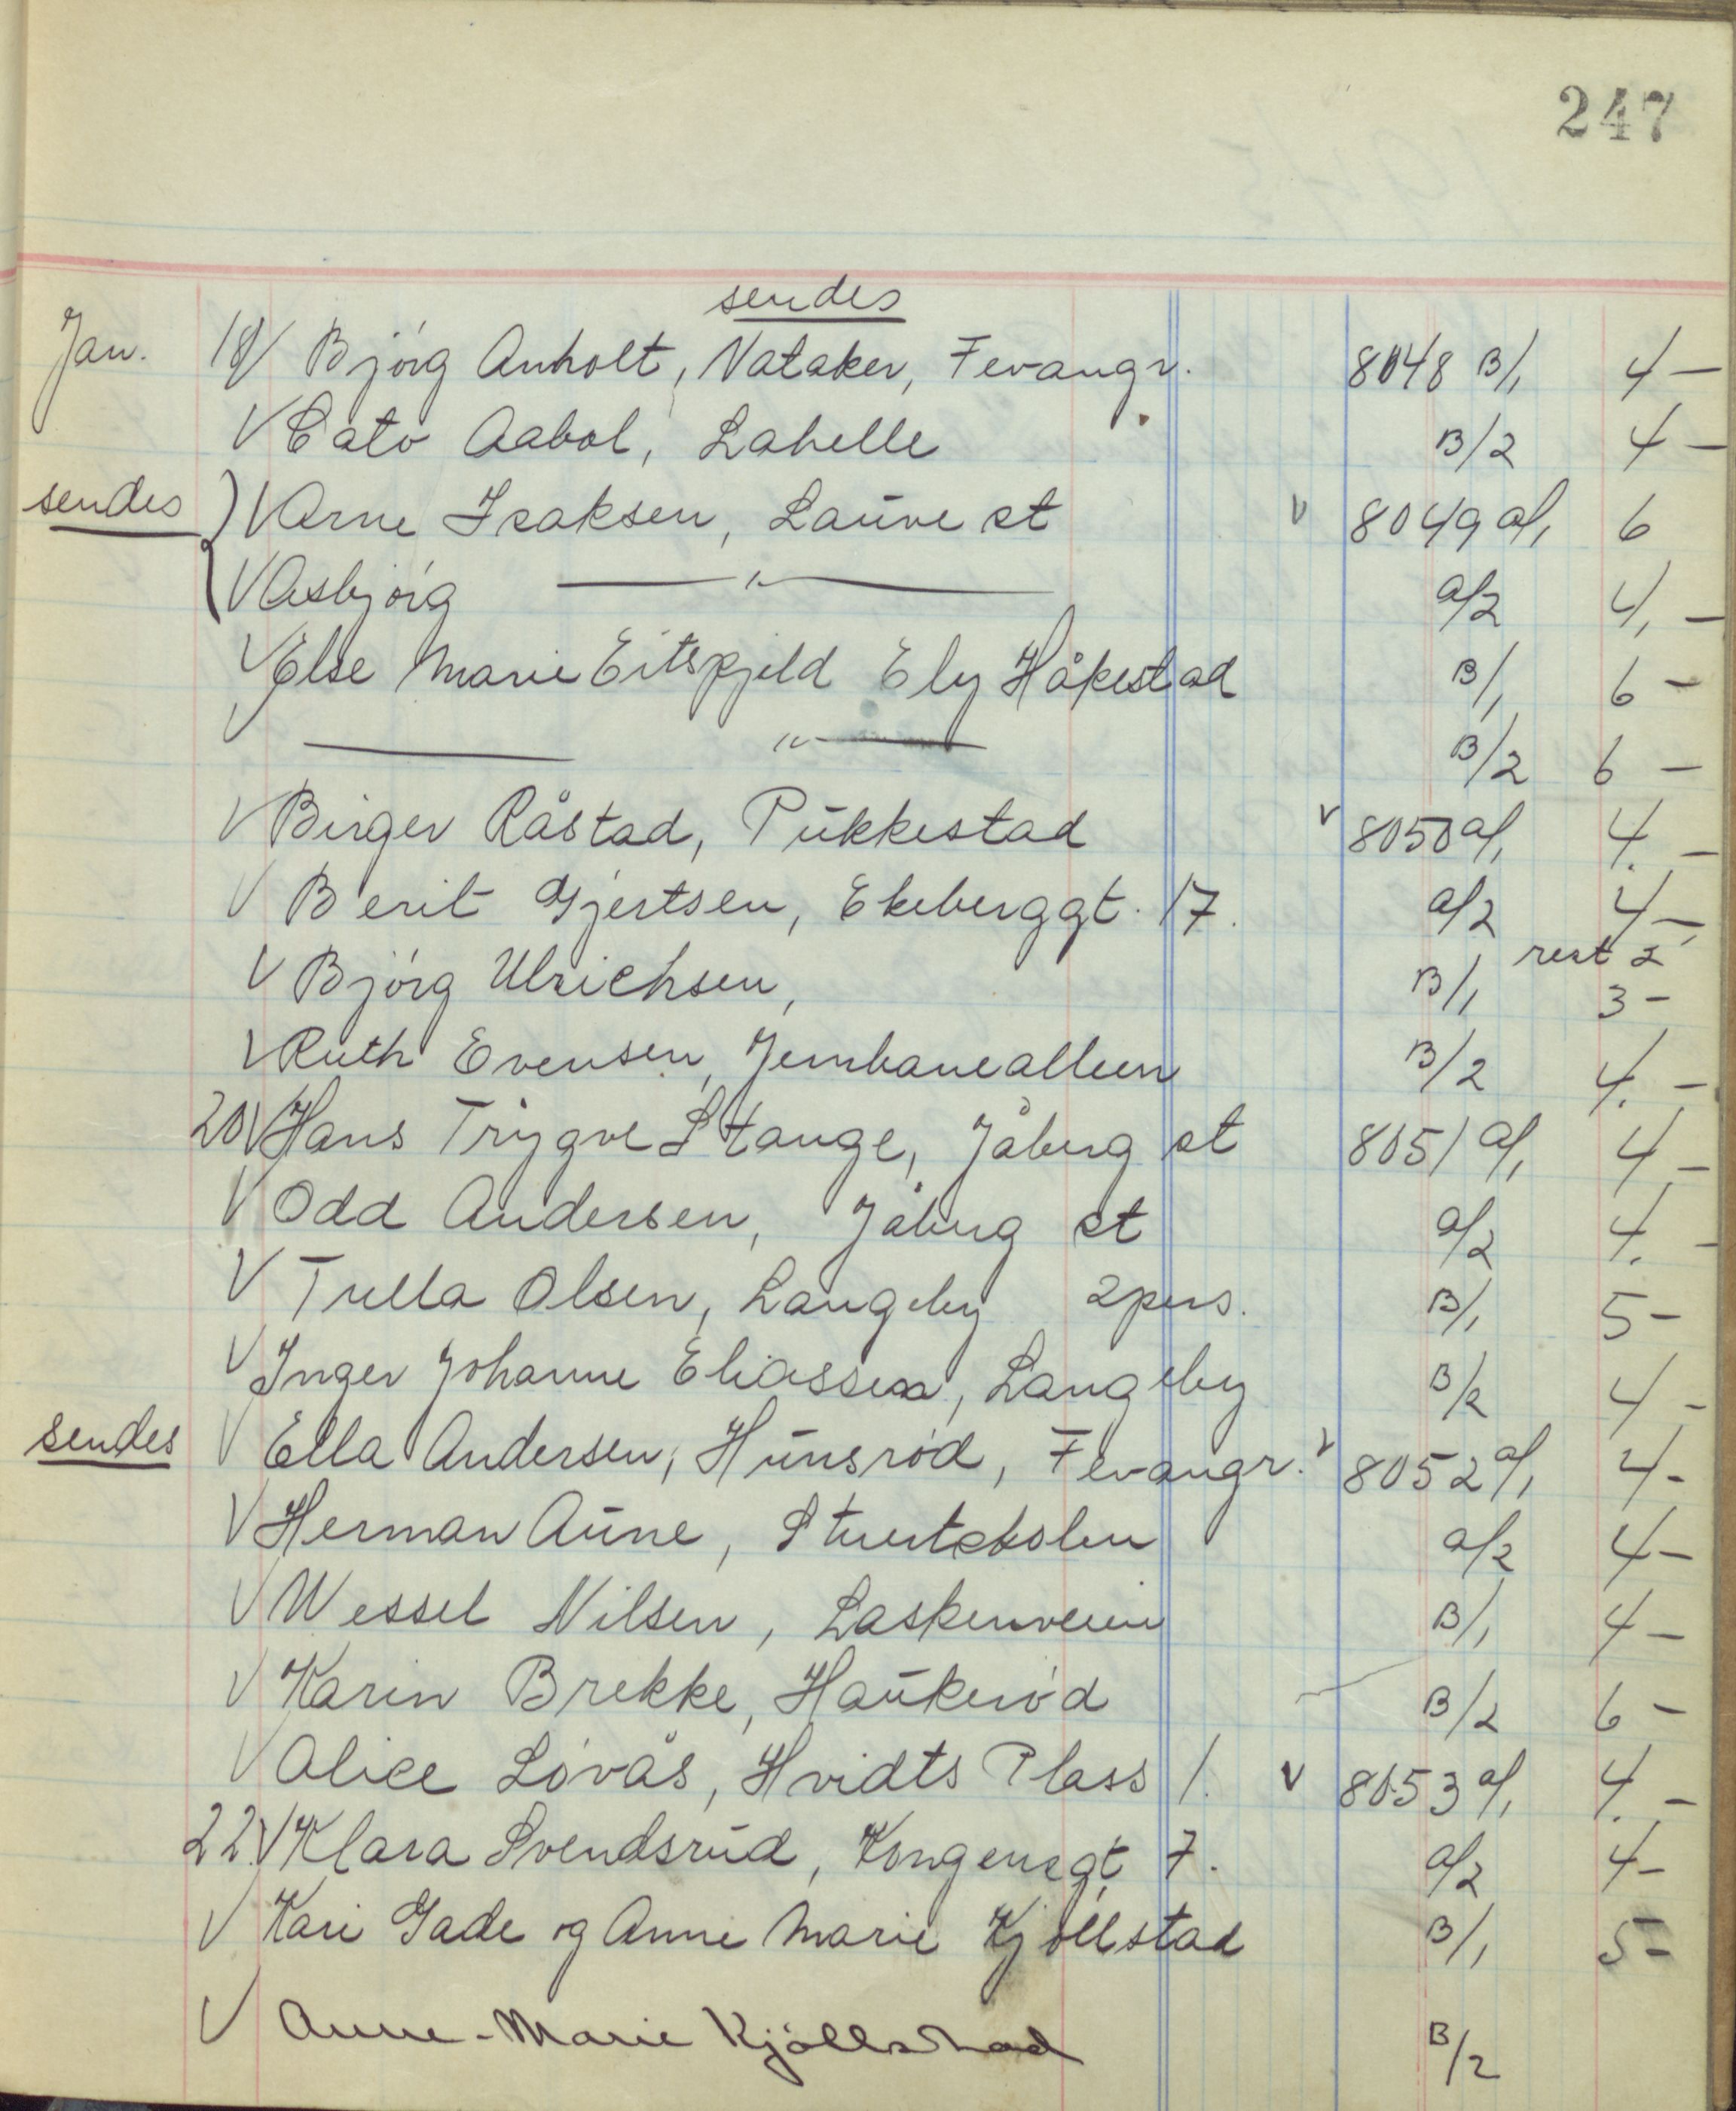 247
sendes
Jan. 19/ Bjórg Anholt, Nataker, Fevangr. 8048 B/1 4 —
V Cato Aabol, Lahelle B/2 4 —
sendes V Arne Isaksen, Lauve st V 8049 a/1 6
V Asbjórg — " — a/2 4, —
V Else Marie Eitskjeld Eby Håkestad B/1 6 —
V — " — B/2 6 —
V Birger Råstad, Pukkestad v 8050 a/1 4. —
V Berit Gjertsen, Ekeberggt. 17. a/2 4 —
rest 2
V Bjórg Ulrichsen, B/1 3 —
V Ruth Evensen, Jernbanealleen B/2 4. —
20 V Hans Trygve Stange, Jåberg st 8051 a/1 4 —
V Odd Andersen, Jåberg st a/2 4. —
V Trulla Olsen, Langeby 2 pers. B/1 5 —
V Inger Johanne Eliassen, Langeby B/2 4 —
sendes V Ella Andersen, Hunsród, Fevangr. v 8052 a/1 4 -
V Herman Aune, a/2 4 —
V Wessel Nilsen, Laskenveien B/1 4 —
V Karin Brekke, Haukeród B/2 6 —
V Alice Lóvås, Hvidts Plass 1. V 8053 a/1 4. —
22. V Klara Svendsrud, Kongensgt 7. a/2 4 —
V Kari Gade og Anne Marie Kjöllstad B/1 5 —
V Anne-Marie Kjöllstad B/2